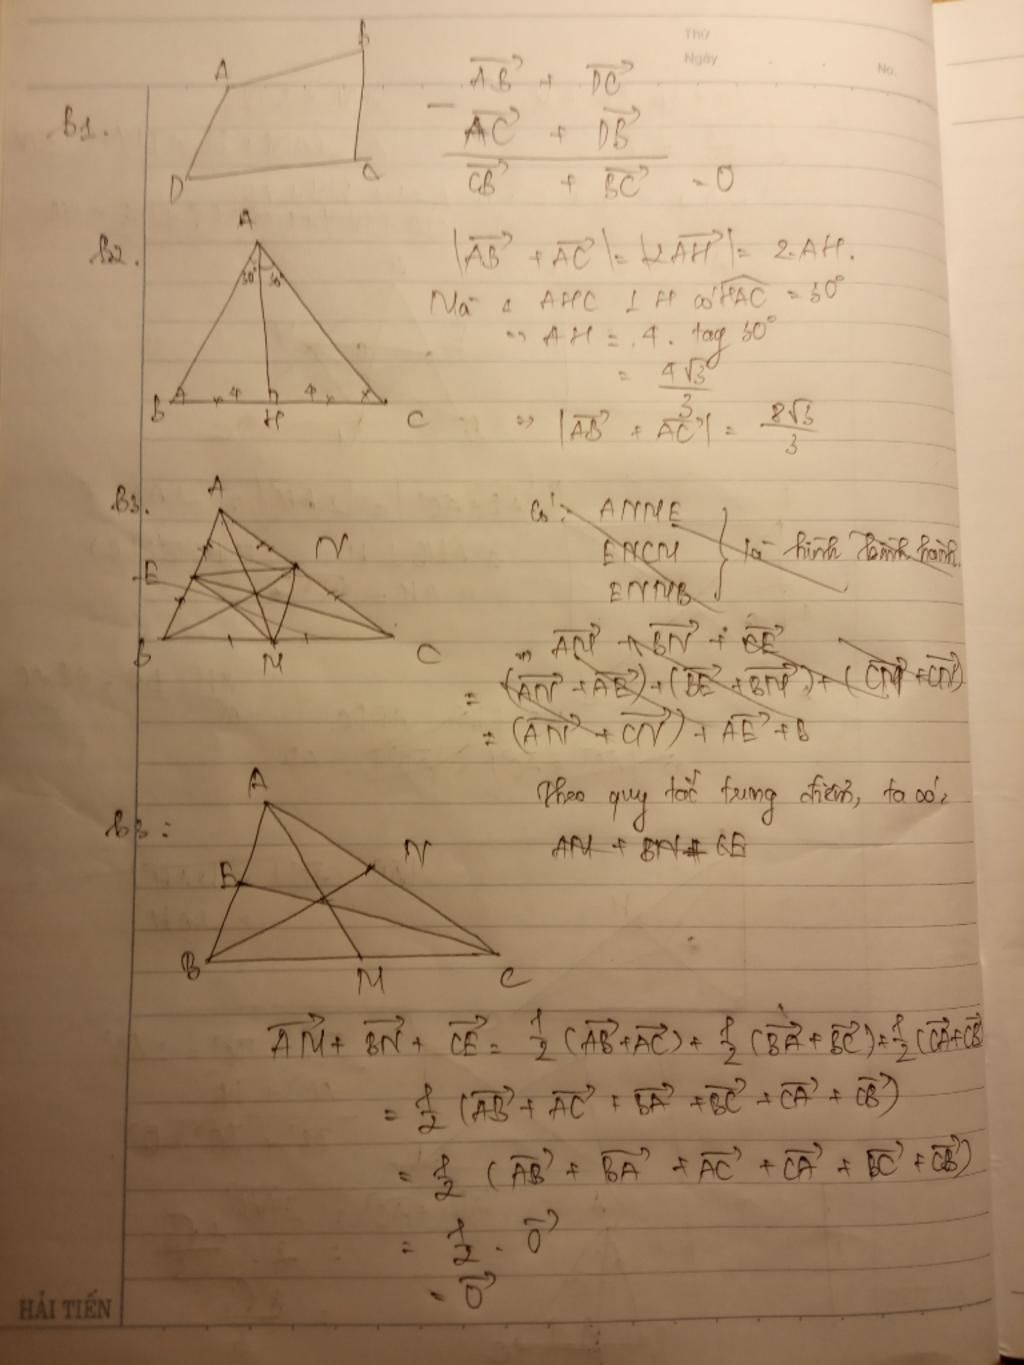 Thứ
Ngày
No.
B1.
A B D C
AB + DC
- AC + DB
CB + BC = 0
B2.
A 30° 30° B 4 H 4 C
|AB + AC| = |2AH| = 2.AH.
Mà Δ AHC ⊥ H có HAC = 30°
=> AH = 4. tag 30°
= 4√3/3
=> |AB + AC| = 8√3/3
B3.
A E N B M C
Có: ANME
ENCM
ENMB
là hình bình hành.
=> AM + BN + CE
= (AN + AE) + (BE + BM) + (CM + CN)
= (AN + CN) + AE + B
B3:
A E N B M C
Theo quy tắc trung điểm, ta có:
AM + BN + CE
AM + BN + CE = 1/2 (AB + AC) + 1/2 (BA + BC) + 1/2 (CA + CB)
= 1/2 (AB + AC + BA + BC + CA + CB)
= 1/2 (AB + BA + AC + CA + BC + CB)
= 1/2 . 0
= 0
HẢI TIẾN